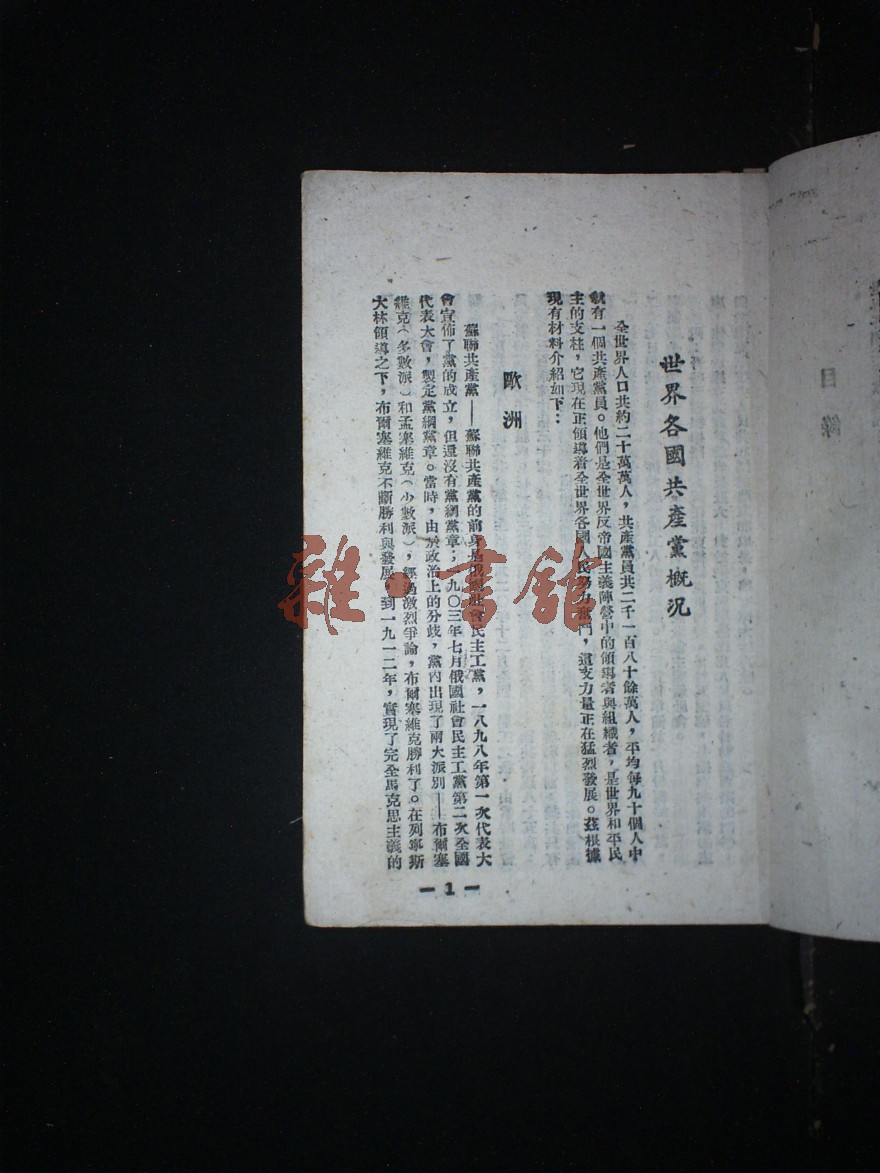 世界各國共產黨概況
全世界人口共約二十萬萬人，共產黨員共二千一百八十餘萬人，平均每九十個人中
就有一個共產黨員。他們是全世界反帝國主義陣營中的領導者與組織者，是世界和平民
主的支柱，它現在正領導着全世界各國人民努力奮鬥，這支力量正在猛烈發展。茲根據
現有材料介紹如下：
歐洲
蘇聯共產黨——蘇聯共產黨的前身是俄國社會民主工黨，一八九八年第一次代表大
會宣佈了黨的成立，但還沒有黨綱黨章；一九〇三年七月俄國社會民主工黨第二次全國
代表大會，製定黨綱黨章。當時，由於政治上的分歧，黨內出現了兩大派別——布爾塞
維克（多數派）和孟塞維克（少數派），經過激烈爭論，布爾塞維克勝利了。在列寧斯
大林領導之下，布爾塞維克不斷勝利與發展，到一九一二年，實現了完全馬克思主義的
— 1 —
目錄
雜·書館